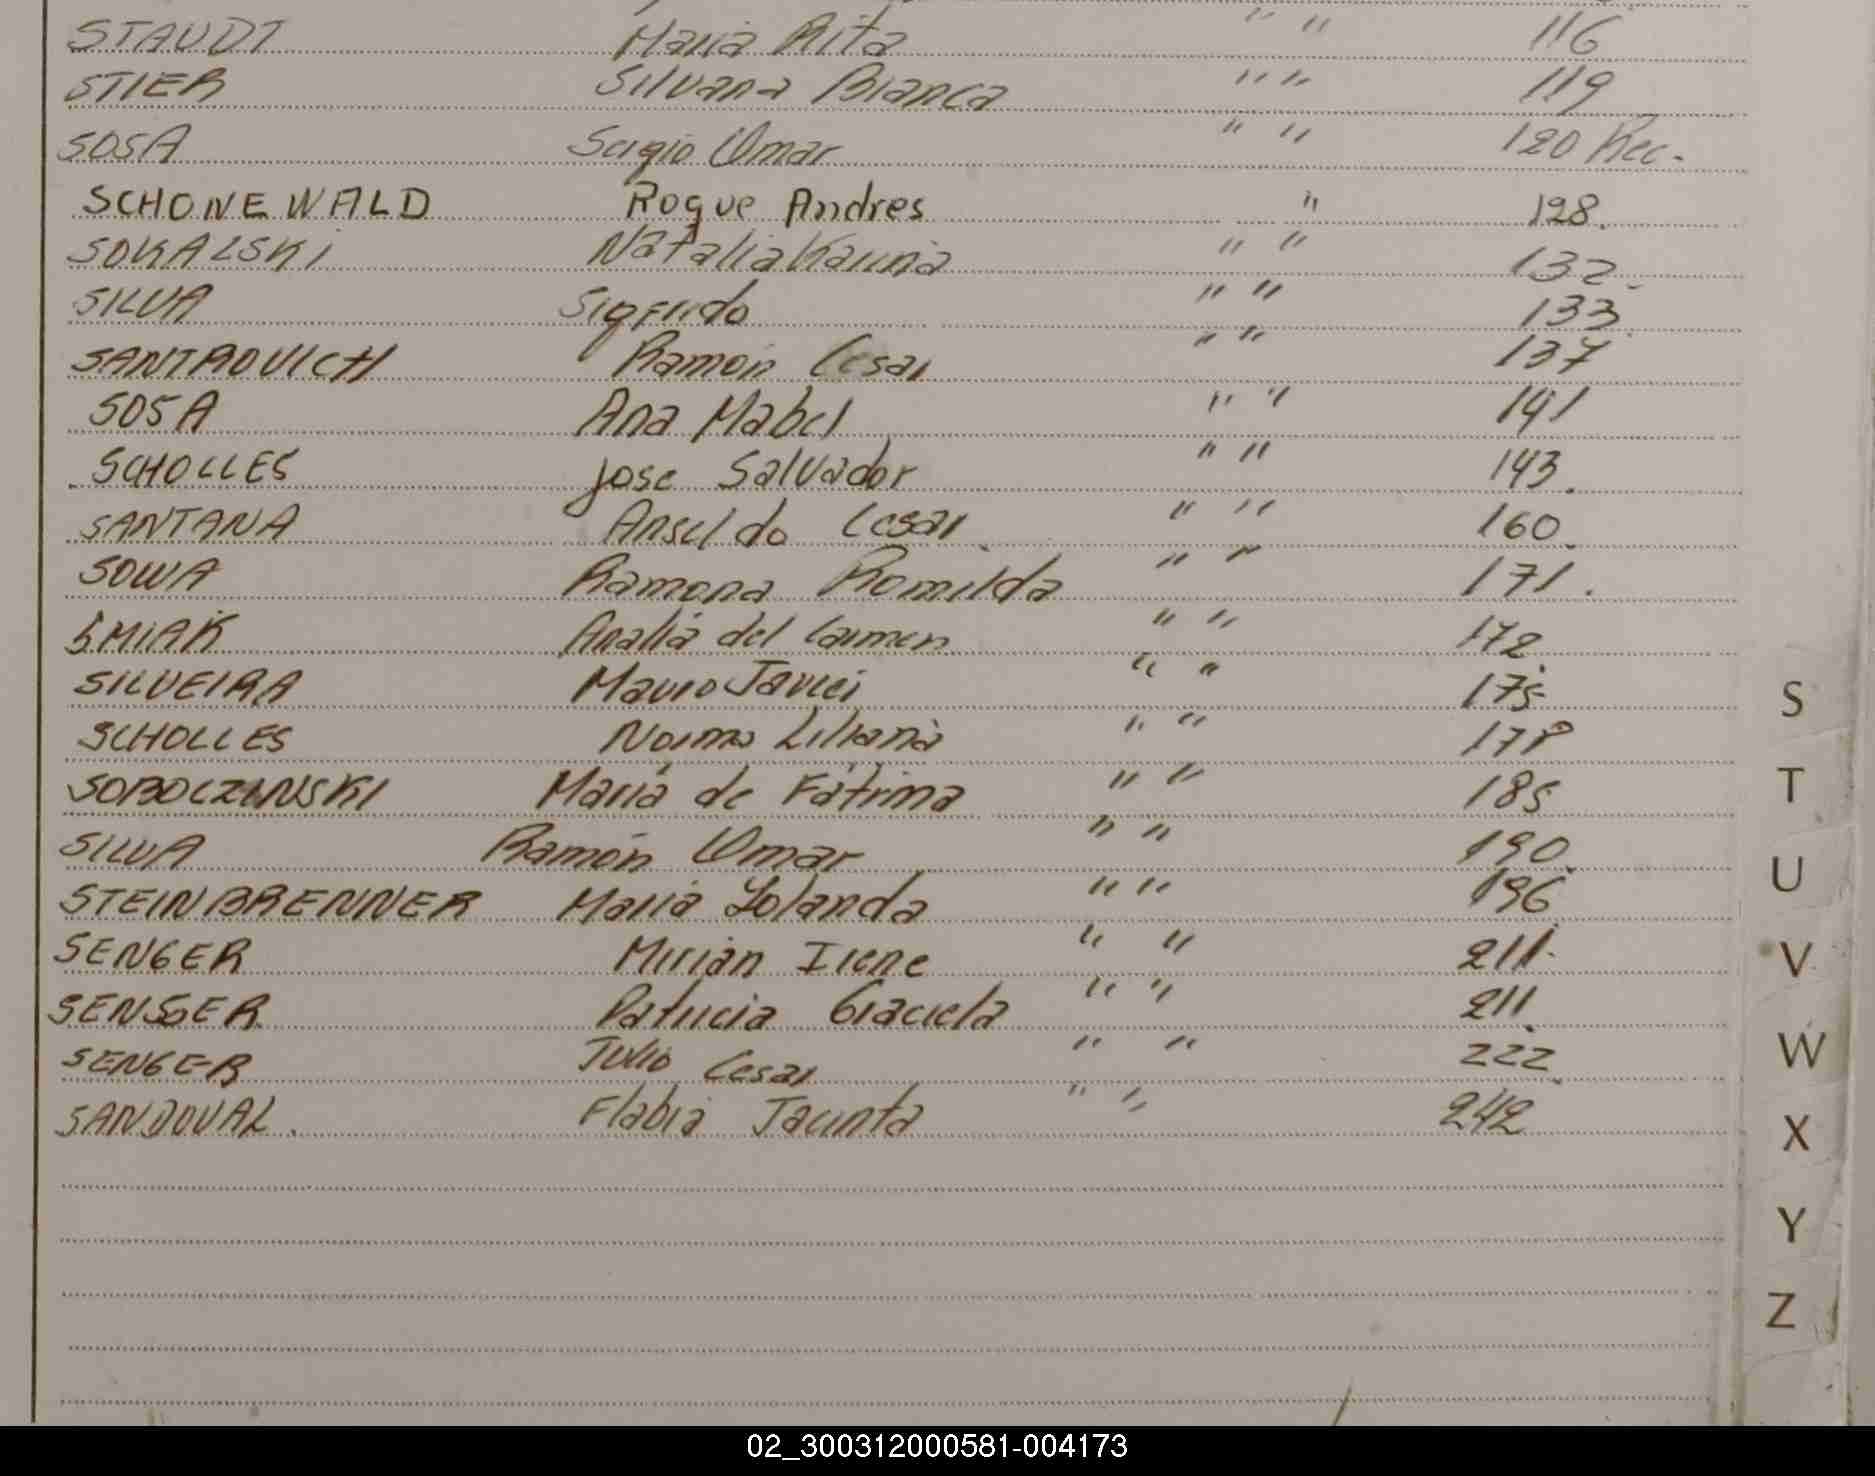 STAUDT Maria Rita " " 116
STIER Silvana Bianca " " 119
SOSA Sergio Omar " " 120 Rec.
SCHONEWALD Roque Andres " 128.
SOKALSKI Natalia Karina " " 132.
SILVA Sigfrido " " 133.
SANTROVICH Ramón Cesar " " 137
SOSA Ana Mabel " " 141
SCHOLLES Jose Salvador " " 143.
SANTANA Anseldo Cesar " " 160.
SOWA Ramona Romilda " " 171.
SMIAK Analia del Carmen " " 172.
SILVEIRA Mauro Javier " " 175
SCHOLLES Norma Liliana " " 178
SOBOCZINSKI María de Fátima " " 185
SILVA Ramón Omar " " 190.
STEINBRENNER Maria Yolanda " " 196
SENGER Mirian Irene " " 211.
SENGER Patricia Graciela " " 211.
SENGER Julio Cesar " " 222.
SANDOVAL. Flabia Jacinta " " 242
S
T
U
V
W
X
Y
Z
02_300312000581-004173